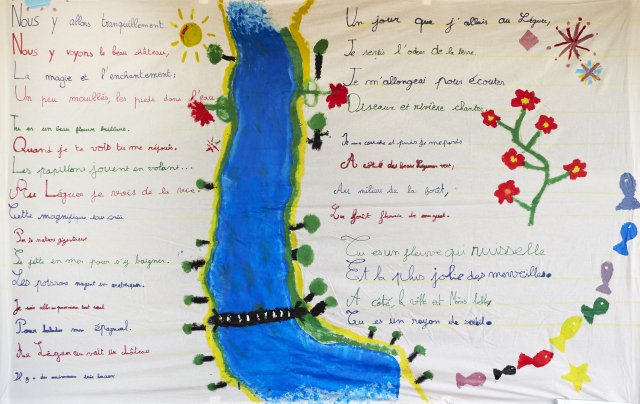 Nous y allons tranquillement
Nous y voyons le beau château,
La magie et l'enchantement;
Un peu mouillés, les pieds dans l'eau
Tu es un beau fleuve brillant.
Quand je te vois tu me réjouis.
Les papillons jouent en volant...
Au Léguer je vois de la vie.
Cette magnifique eau
gigantesque
Je jette en moi pour s'y baigner.
Les poissons nagent en
Je suis tout seul
Pour mon Épagneul.
Au Léguer on voit un château
Il y a des animaux très beaux
Un jour que j'allais au Léguer,
Je sentis l'odeur de la terre.
Je m'allongeai pour écouter
Oiseaux et rivière chanter.
Je me couche et puis je me perds
A côté du beau Léguer vert,
Au milieu de la forêt,
La forêt fleurie de muguet.
Tu es un fleuve qui ruisselle
Et la plus jolie des merveilles.
A côté, la ville et
Tu es un rayon de soleil.